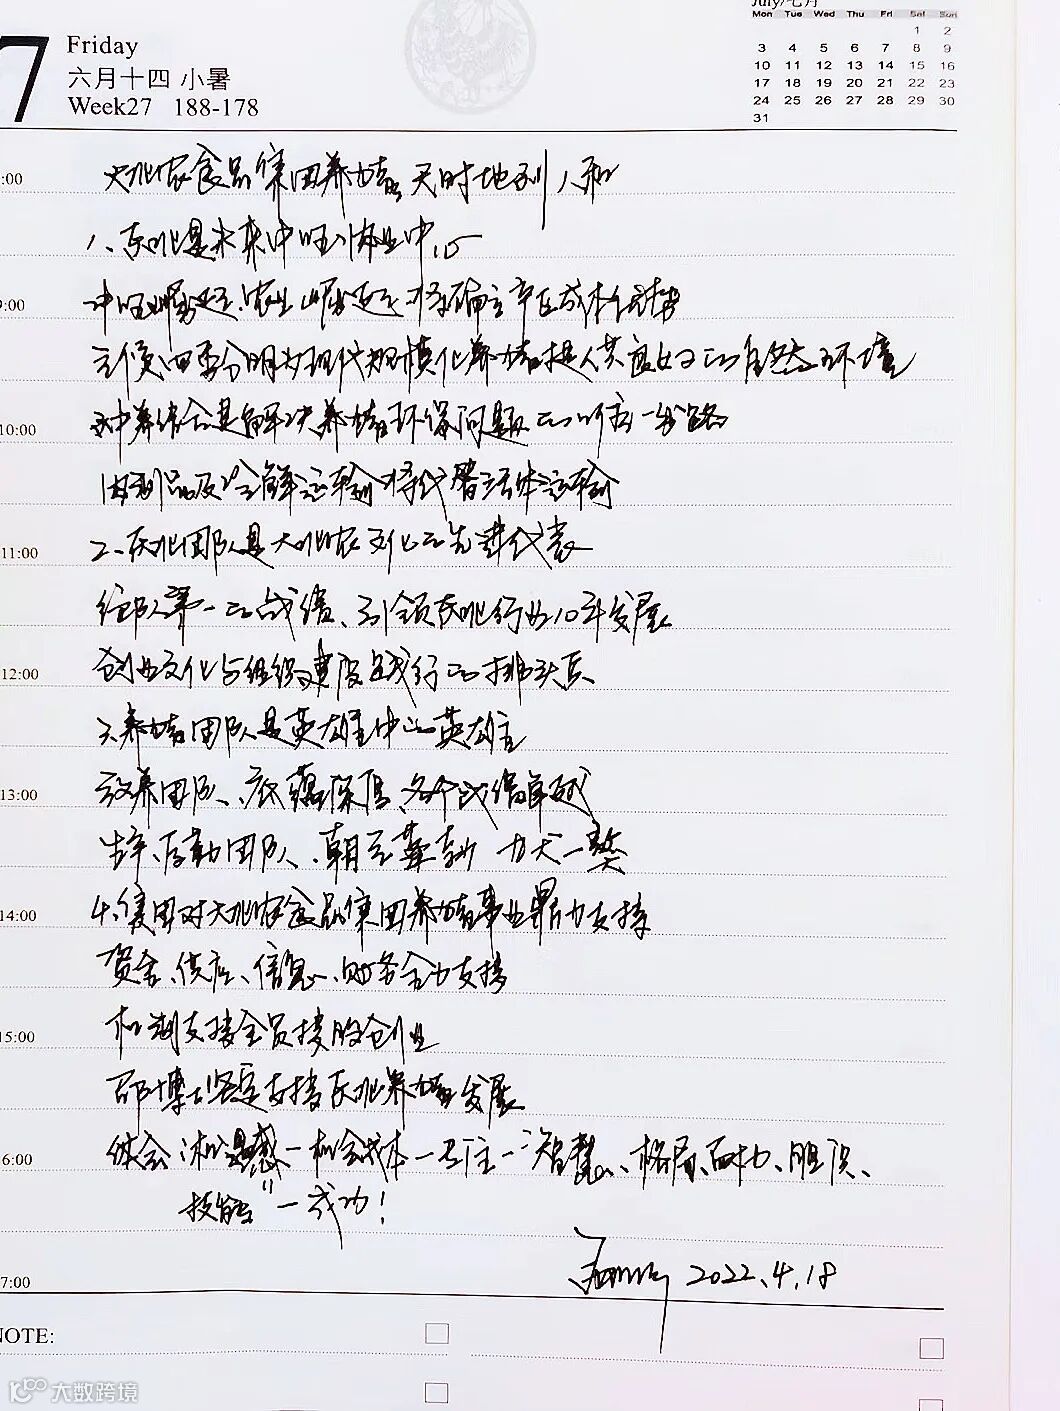 July/七月
Mon Tue Wed Thu Fri Sat Sun
1 2
3 4 5 6 7 8 9
10 11 12 13 14 15 16
17 18 19 20 21 22 23
24 25 26 27 28 29 30
31
7
Friday
六月十四 小暑
Week27 188-178
:00 大北农食品集团养猪天时地利人和
1、东北是未来中国养猪业中心
9:00 农业崛起将确立产区成本优势
四季分明为现代规模化养猪提供良好的自然环境
10:00 种养结合是解决养猪环保问题的唯一出路
肉制品及冷鲜运输将代替活体运输
11:00 2、东北团队是大北农文化的先进代表
第一的战绩、引领东北行业10年发展
12:00 创业文化与组织建设践行的排头兵
3、养猪团队是英雄中的英雄
13:00 放养团队、底蕴深厚、各个战绩卓越
后勤团队、
14:00 4、集团对大北农食品集团养猪事业鼎力支持
资金、供应、信息、财务全力支持
15:00 机制支持全员持股创业
邵博士坚定支持东北养猪发展
16:00 体会:机遇感—机会成本—专注—“智慧、格局、魄力、胆识、
技能”—成功!
17:00 2022.4.18
NOTE:
大数跨境